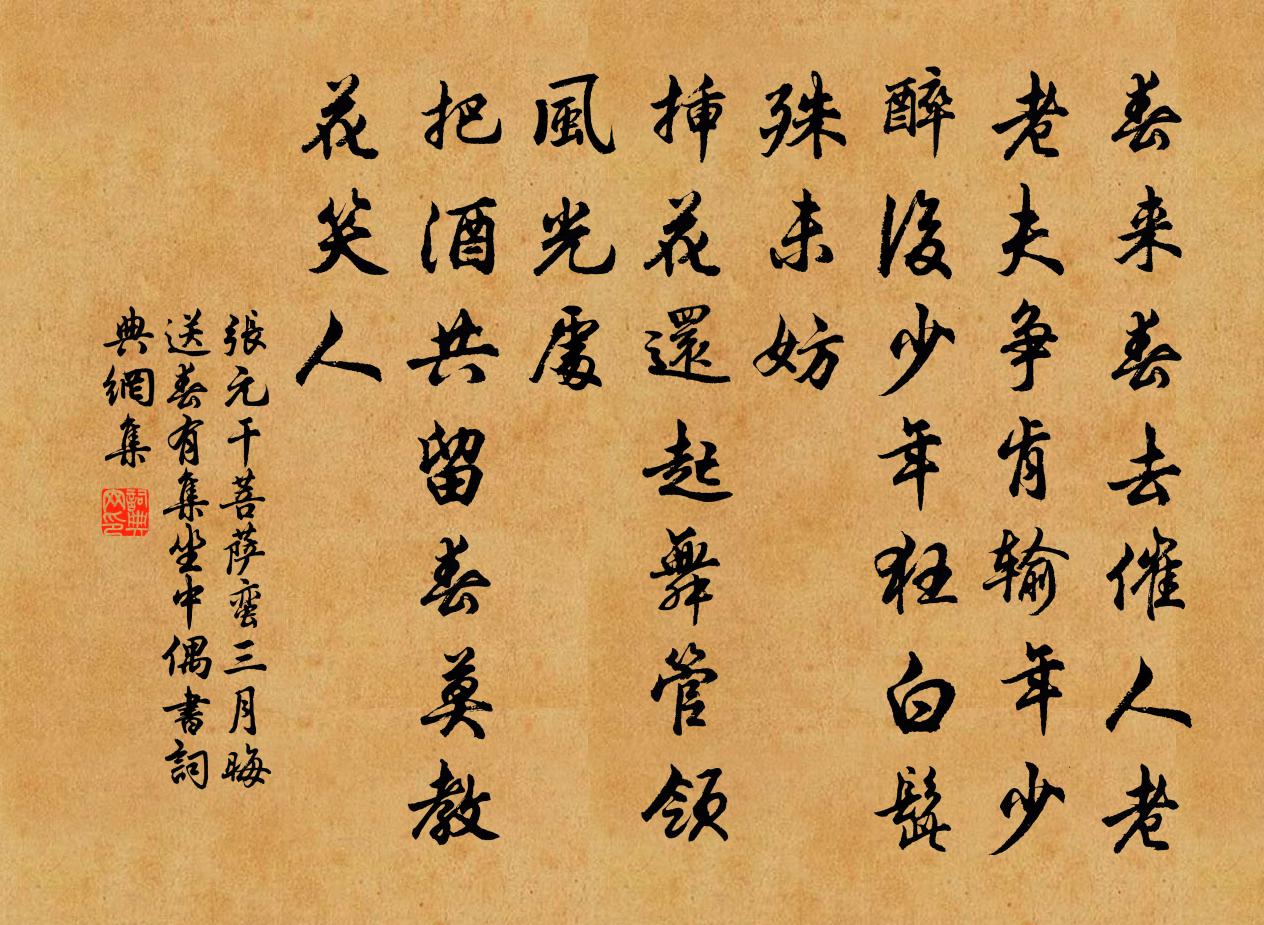 春来春去催人老
老夫争肯输年少
醉後少年狂白髭
殊未妨
插花還起舞管領
風光處
把酒共留春莫教
花笑人
張元干菩萨蛮三月晦
送春有集坐中偶書詞
典網集
詞典網印